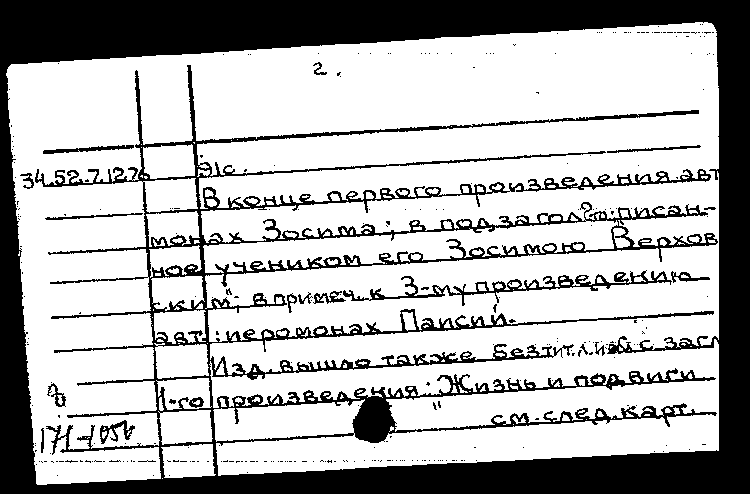 2.
34.52.7.1276 91с.
В конце первого произведения авт
монах Зосима; в подзагол 2го: писан-
ное учеником его Зосимою Верхов
ским"; в примеч. к 3-му произведению
авт.: иеромонах Паисий.
Изд. вышло также без тит. л. и обл. с загл
1-го произведения: Жизнь и подвиги
171-1056
см. след. карт.